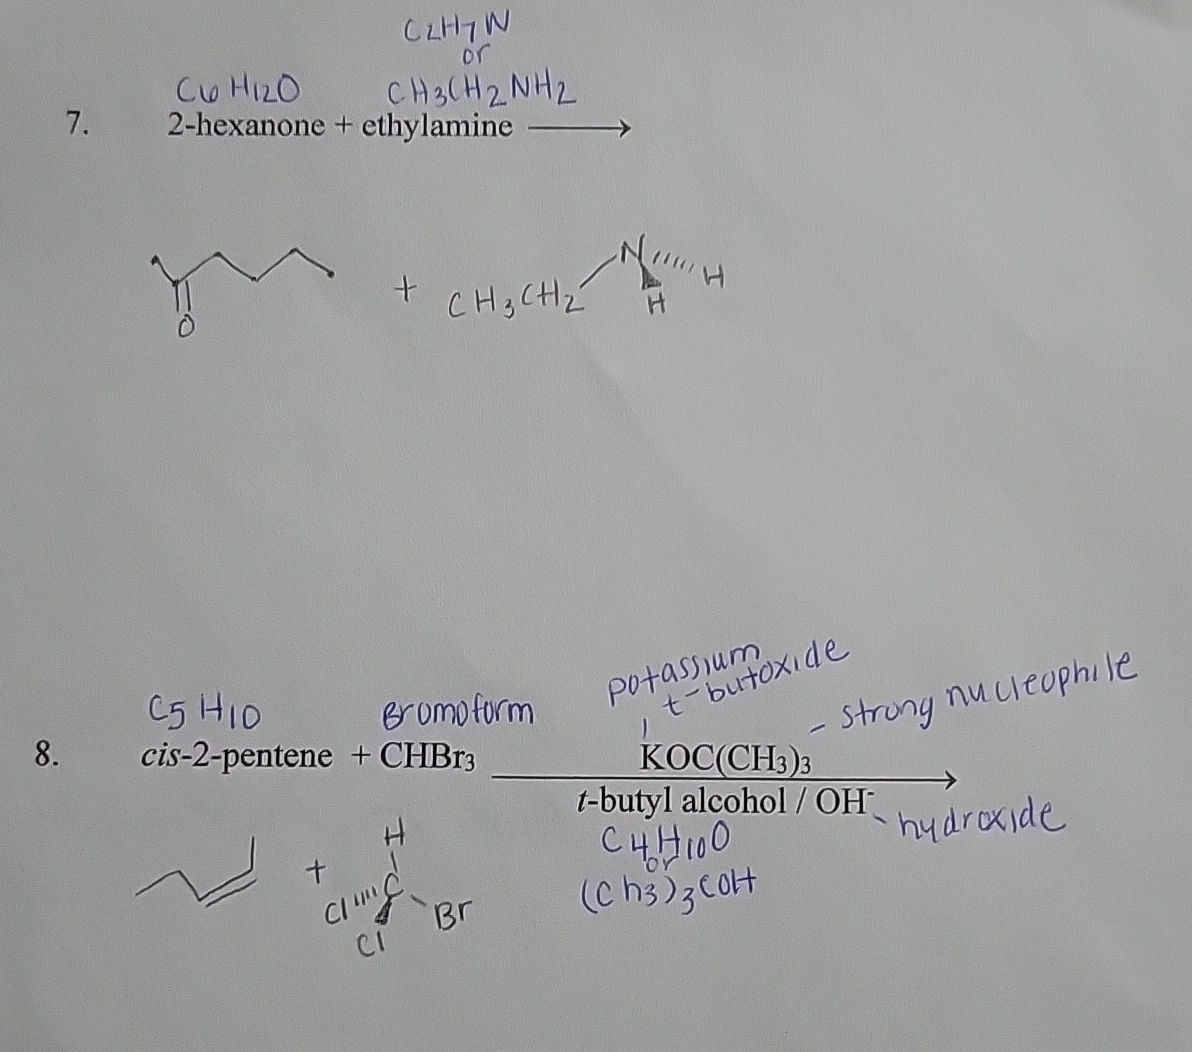 C2H7N
or
C6H12O CH3CH2NH2
7. 2-hexanone + ethylamine ⟶
O + CH3CH2 N H H
potassium
t-butoxide
C5H10 Bromoform - strong nucleophile
8. cis-2-pentene + CHBr3 KOC(CH3)3
t-butyl alcohol / OH- - hydroxide
C4H10O
or
(Ch3)3COH
H
+ C
Cl Br
Cl